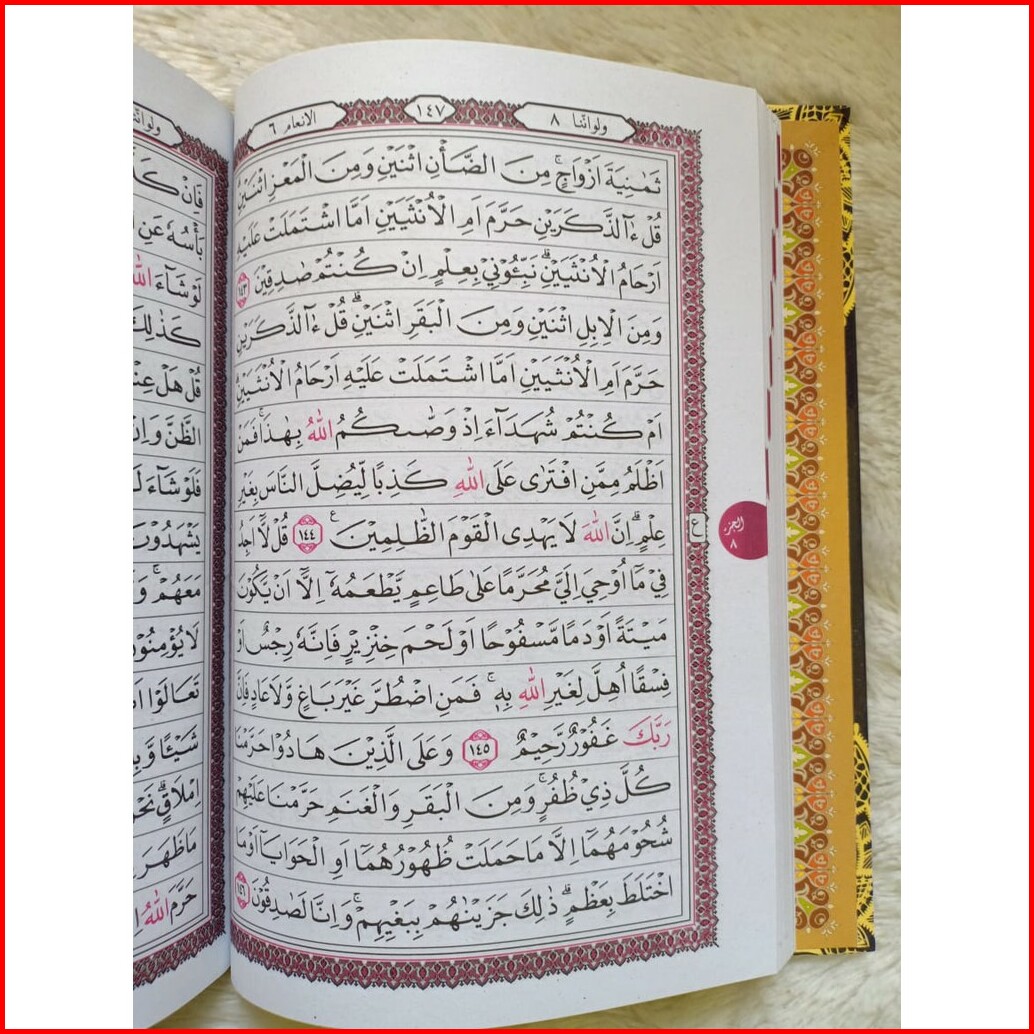 ولواننا ٨
١٤٧
الانعام ٦
ثَمٰنِيَةَ اَزْوَاجٍۚ مِنَ الضَّأْنِ اثْنَيْنِ وَمِنَ الْمَعْزِ اثْنَيْنِۗ
قُلْ ءٰۤالذَّكَرَيْنِ حَرَّمَ اَمِ الْاُنْثَيَيْنِ اَمَّا اشْتَمَلَتْ عَلَيْهِ
اَرْحَامُ الْاُنْثَيَيْنِۗ نَبِّـُٔوْنِيْ بِعِلْمٍ اِنْ كُنْتُمْ صٰدِقِيْنَ ١٤٣
وَمِنَ الْاِبِلِ اثْنَيْنِ وَمِنَ الْبَقَرِ اثْنَيْنِۗ قُلْ ءٰۤالذَّكَرَيْنِ
حَرَّمَ اَمِ الْاُنْثَيَيْنِ اَمَّا اشْتَمَلَتْ عَلَيْهِ اَرْحَامُ الْاُنْثَيَيْنِۗ
اَمْ كُنْتُمْ شُهَدَاۤءَ اِذْ وَصّٰىكُمُ اللّٰهُ بِهٰذَاۚ فَمَنْ
اَظْلَمُ مِمَّنِ افْتَرٰى عَلَى اللّٰهِ كَذِبًا لِّيُضِلَّ النَّاسَ بِغَيْرِ
عِلْمٍۗ اِنَّ اللّٰهَ لَا يَهْدِى الْقَوْمَ الظّٰلِمِيْنَ ࣖ ١٤٤ قُلْ لَّآ اَجِدُ
فِيْ مَآ اُوْحِيَ اِلَيَّ مُحَرَّمًا عَلٰى طَاعِمٍ يَّطْعَمُهٗٓ اِلَّآ اَنْ يَّكُوْنَ
مَيْتَةً اَوْ دَمًا مَّسْفُوْحًا اَوْ لَحْمَ خِنْزِيْرٍ فَاِنَّهٗ رِجْسٌ اَوْ
فِسْقًا اُهِلَّ لِغَيْرِ اللّٰهِ بِهٖۚ فَمَنِ اضْطُرَّ غَيْرَ بَاغٍ وَّلَا عَادٍ فَاِنَّ
رَبَّكَ غَفُوْرٌ رَّحِيْمٌ ١٤٥ وَعَلَى الَّذِيْنَ هَادُوْا حَرَّمْنَا
كُلَّ ذِيْ ظُفُرٍۚ وَمِنَ الْبَقَرِ وَالْغَنَمِ حَرَّمْنَا عَلَيْهِمْ
شُحُوْمَهُمَآ اِلَّا مَا حَمَلَتْ ظُهُوْرُهُمَآ اَوِ الْحَوَايَآ اَوْ مَا
اخْتَلَطَ بِعَظْمٍۗ ذٰلِكَ جَزَيْنٰهُمْ بِبَغْيِهِمْۚ وَاِنَّا لَصٰدِقُوْنَ ١٤٦
ع
الجزء
٨
فَاِنْ
بَأْسُهٗ عَنِ
لَوْ شَاۤءَ اللّٰهُ
كَذٰلِكَ
قُلْ هَلْ
الظَّنَّ وَاِنْ
فَلَوْ شَاۤءَ
يَشْهَدُوْنَ
مَعَهُمْۚ
لَا يُؤْمِنُوْنَ
تَعَالَوْا
شَيْـًٔا
اِمْلَاقٍۗ
مَا ظَهَرَ
حَرَّمَ اللّٰهُ